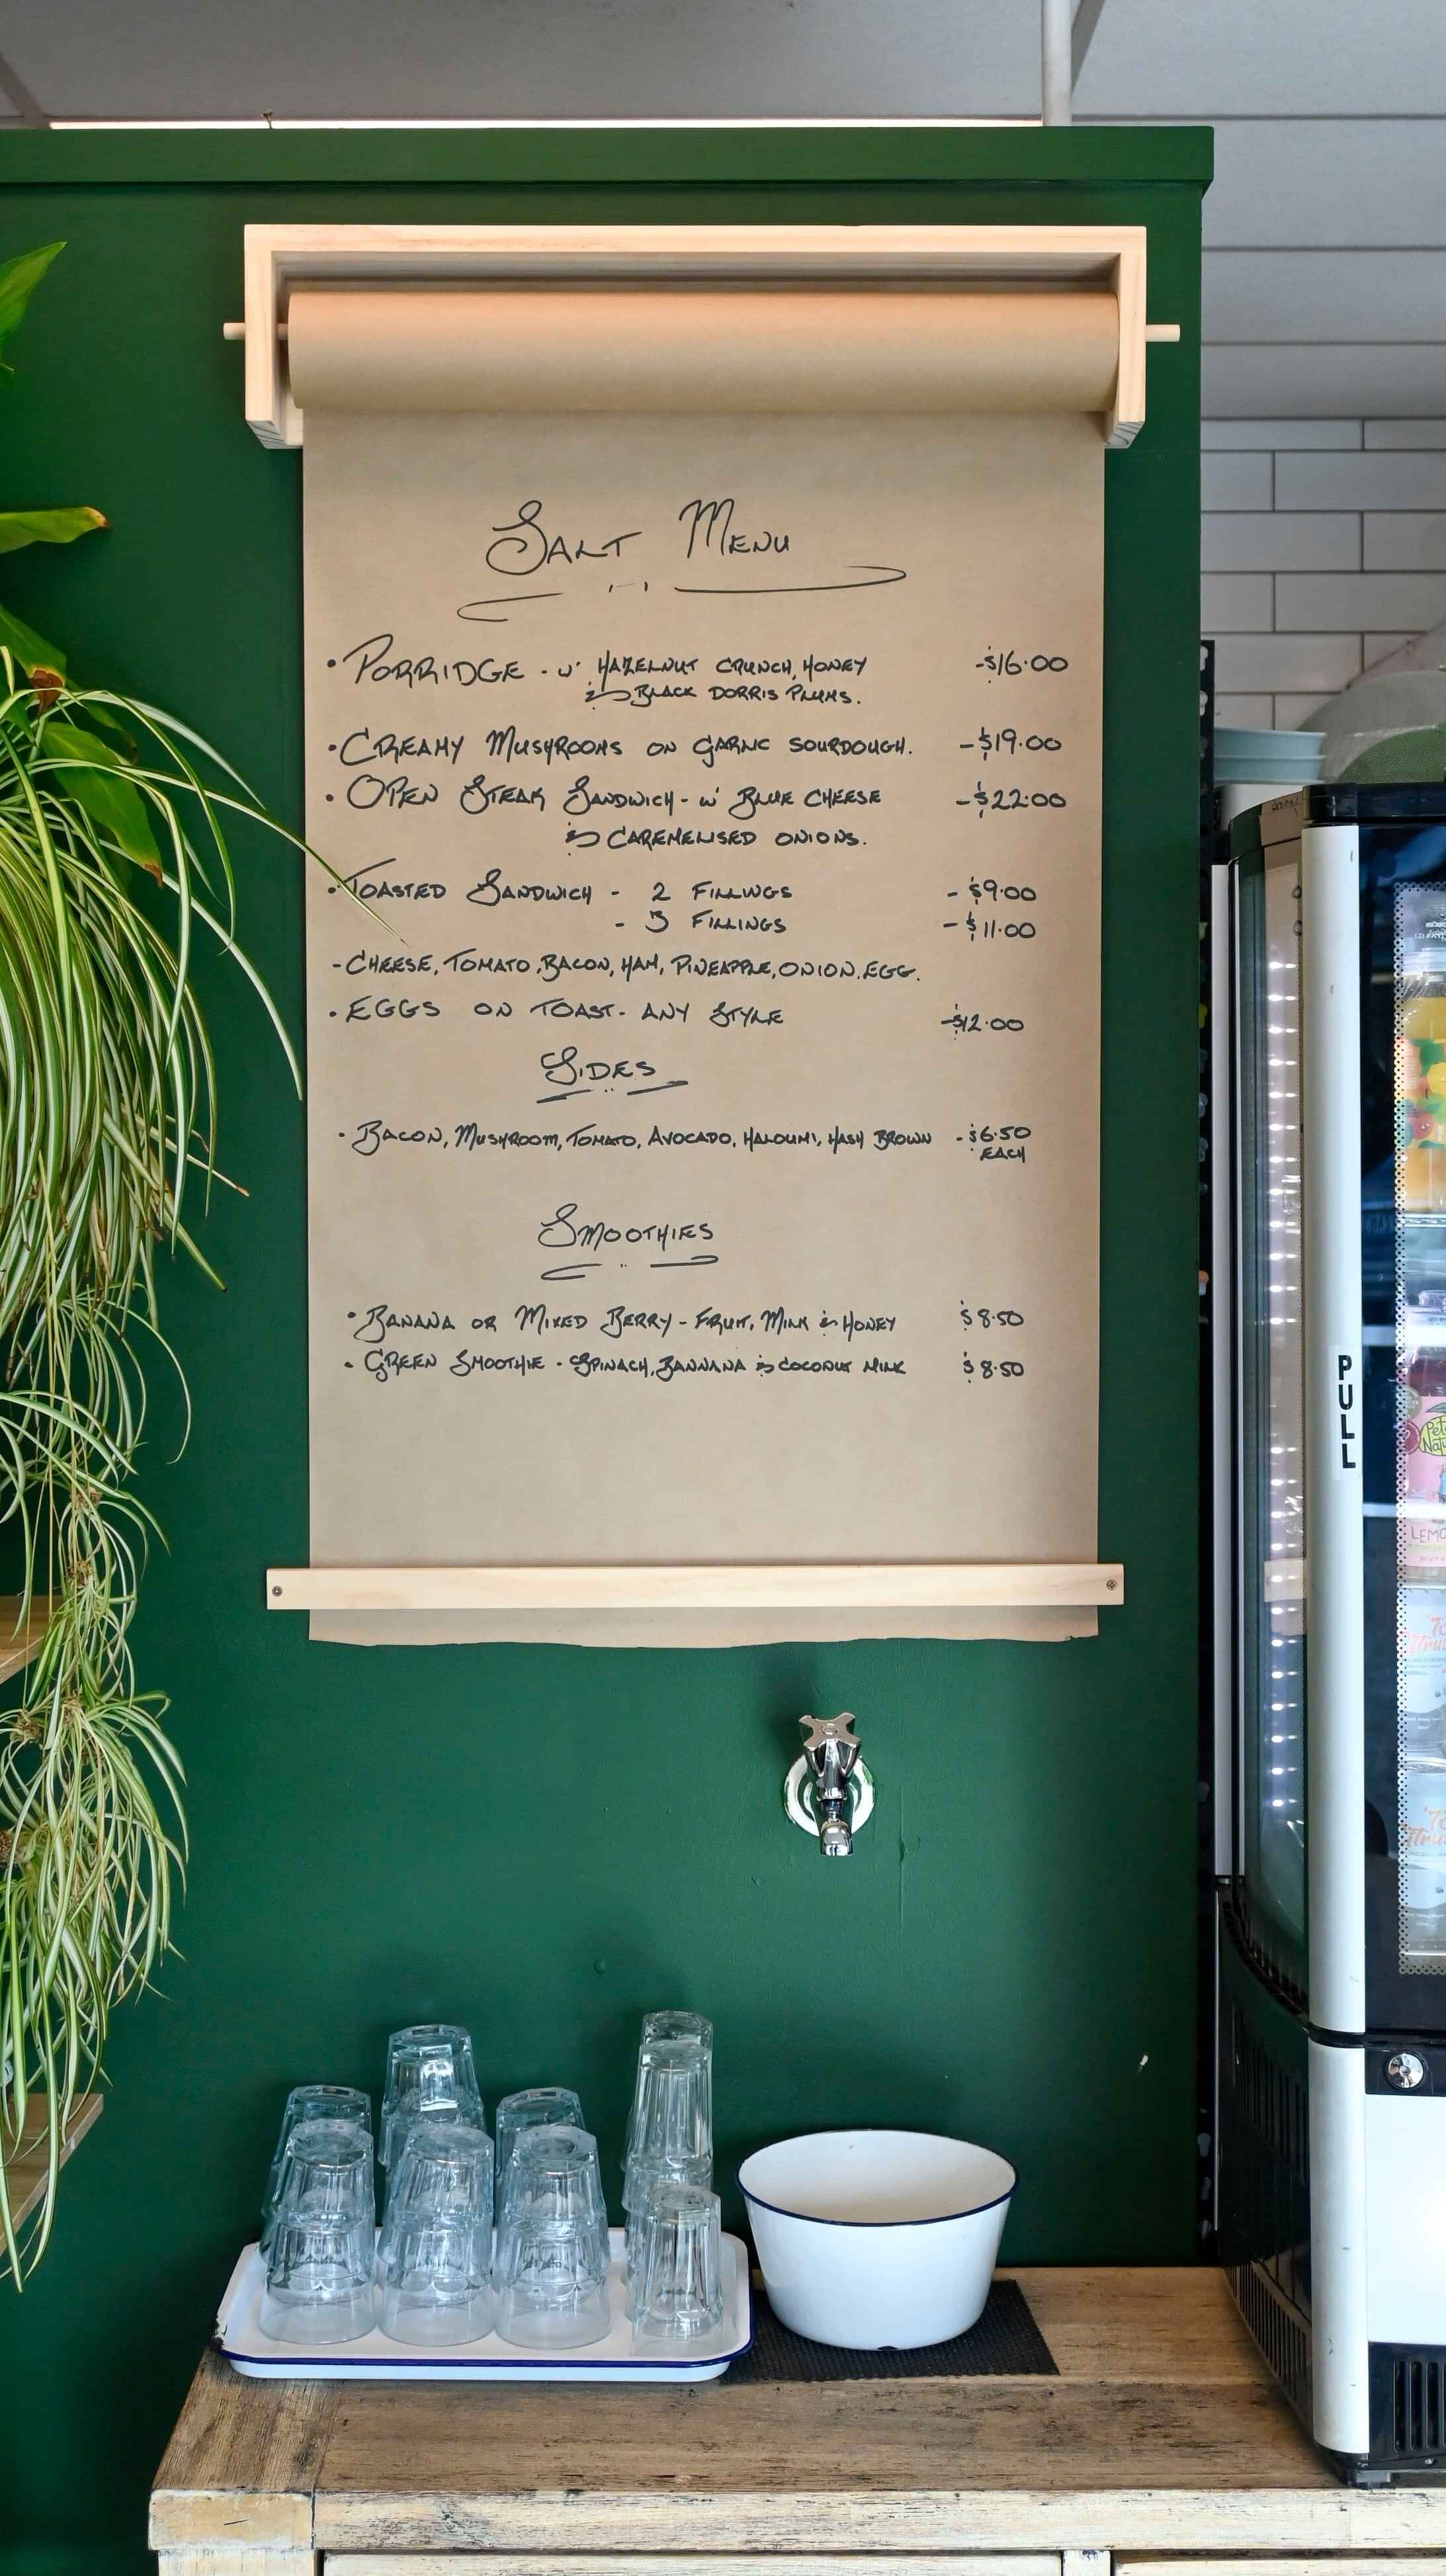 SALT MENU
• PORRIDGE - W' HAZELNUT CRUNCH, HONEY -$16.00
& BLACK DORRIS PLUMS.
• CREAMY MUSHROOMS ON GARLIC SOURDOUGH. -$19.00
• OPEN STEAK SANDWICH - W' BLUE CHEESE -$22.00
& CAREMELISED ONIONS.
• TOASTED SANDWICH - 2 FILLINGS - $9.00
- 3 FILLINGS - $11.00
- CHEESE, TOMATO, BACON, HAM, PINEAPPLE, ONION. EGG.
• EGGS ON TOAST - ANY STYLE -$12.00
SIDES
• BACON, MUSHROOM, TOMATO, AVOCADO, HALOUMI, HASH BROWN - $6.50
EACH
SMOOTHIES
• BANANA OR MIXED BERRY - FRUIT, MILK & HONEY $8.50
• GREEN SMOOTHIE - SPINACH, BANNANA & COCONUT MILK $8.50
PULL